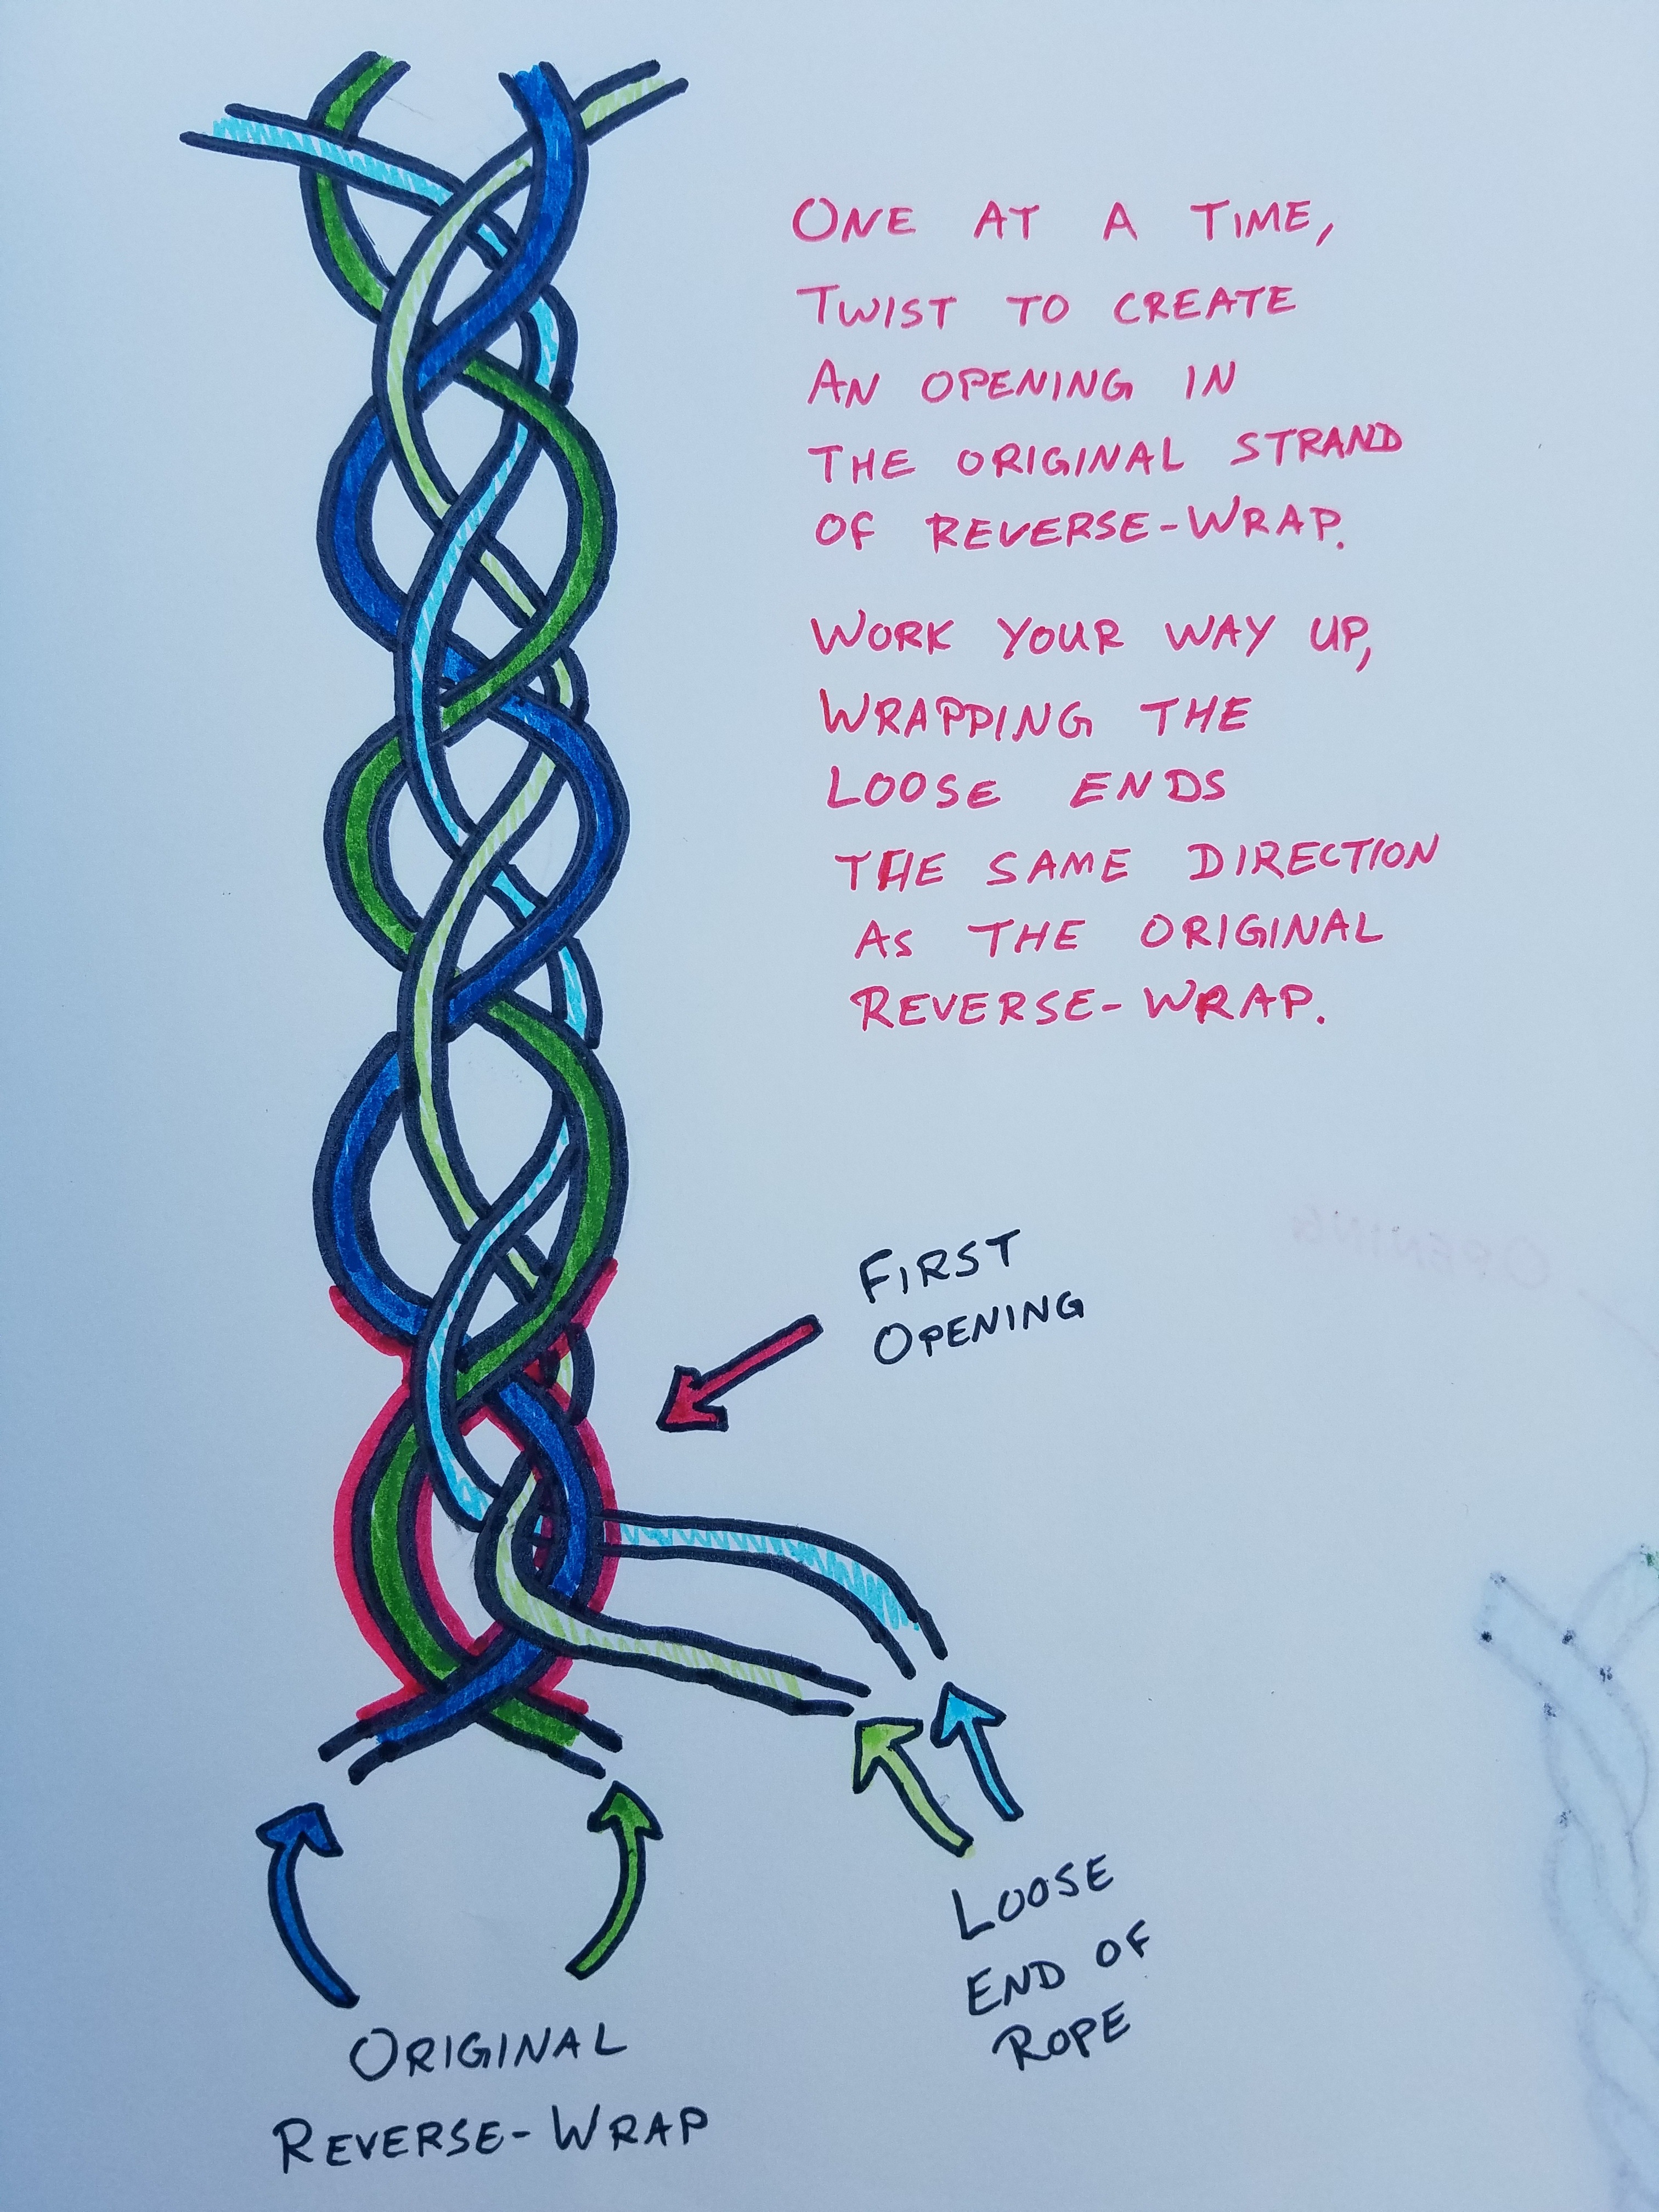 ONE AT A TIME,
TWIST TO CREATE
AN OPENING IN
THE ORIGINAL STRAND
OF REVERSE-WRAP.
WORK YOUR WAY UP,
WRAPPING THE
LOOSE ENDS
THE SAME DIRECTION
AS THE ORIGINAL
REVERSE-WRAP.
OPENING
FIRST
OPENING
LOOSE
END OF
ROPE
ORIGINAL
REVERSE-WRAP